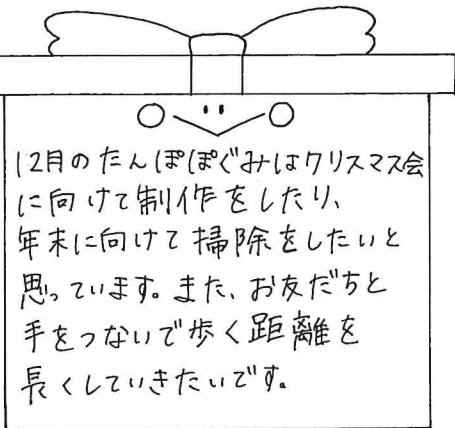 12月のたんぽぽぐみはクリスマス会
に向けて制作をしたり、
年末に向けて掃除をしたいと
思っています。また、お友だちと
手をつないで歩く距離を
長くしていきたいです。